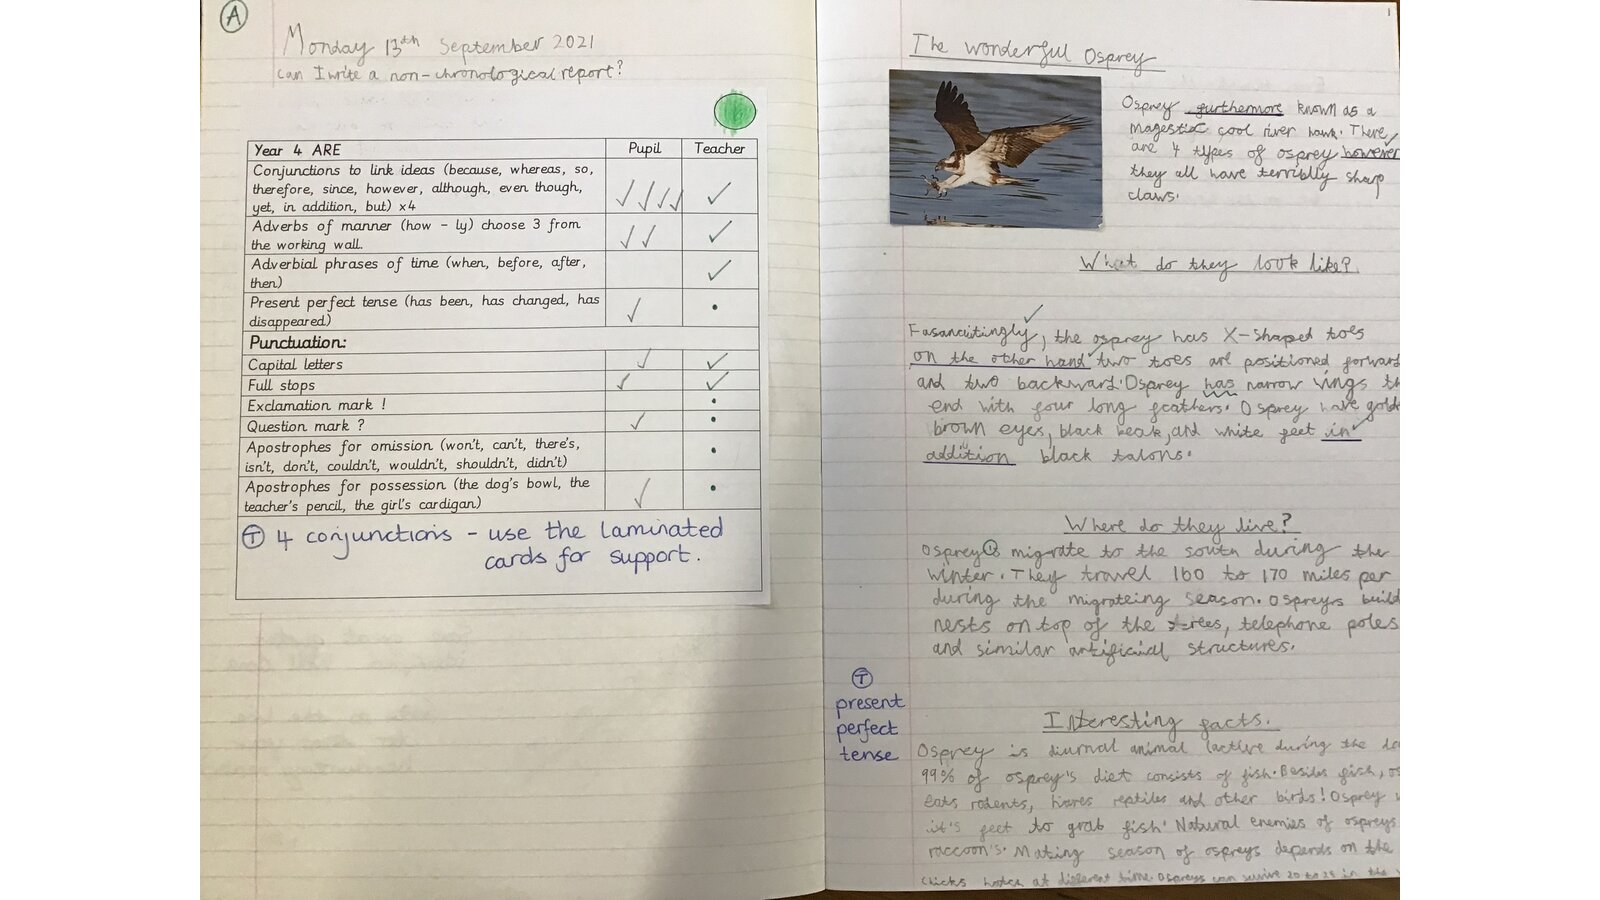 A
Monday 13th September 2021
can I write a non-chronological report?
Year 4 ARE Pupil Teacher
Conjunctions to link ideas (because, whereas, so,
therefore, since, however, although, even though,
yet, in addition, but) x4
Adverbs of manner (how - ly) choose 3 from
the working wall.
Adverbial phrases of time (when, before, after,
then)
Present perfect tense (has been, has changed, has
disappeared)
Punctuation:
Capital letters
Full stops
Exclamation mark !
Question mark ?
Apostrophes for omission (won't, can't, there's,
isn't, don't, couldn't, wouldn't, shouldn't, didn't)
Apostrophes for possession (the dog's bowl, the
teacher's pencil, the girl's cardigan)
T 4 conjunctions - use the laminated
cards for support.
The wonderful Osprey
Osprey furthermore known as a
magestic cool river hawk. There
are 4 types of osprey however
they all have terribly sharp
claws.
What do they look like?
Fasancitingly, the osprey has X-shaped toes
on the other hand two toes are positioned forward
and two backward. Osprey has narrow wings th
end with four long feathers. Osprey have gold
brown eyes, black beak, and white feet in
addition black talons.
Where do they live?
Ospreys migrate to the south during the
winter. They travel 160 to 170 miles per
during the migrateing season. Ospreys build
nests on top of the trees, telephone poles
and similar artificial structures.
T
present
perfect
tense
Interesting facts.
Osprey is diurnal animal (active during the da
99% of osprey's diet consists of fish. Besides fish, os
eats rodents, hares reptiles and other birds! Osprey
it's feet to grab fish. Natural enemies of ospreys
raccoon's. Mating season of ospreys depends on the
chicks hatch at different time. Ospreys can survive 20 to 25 in the